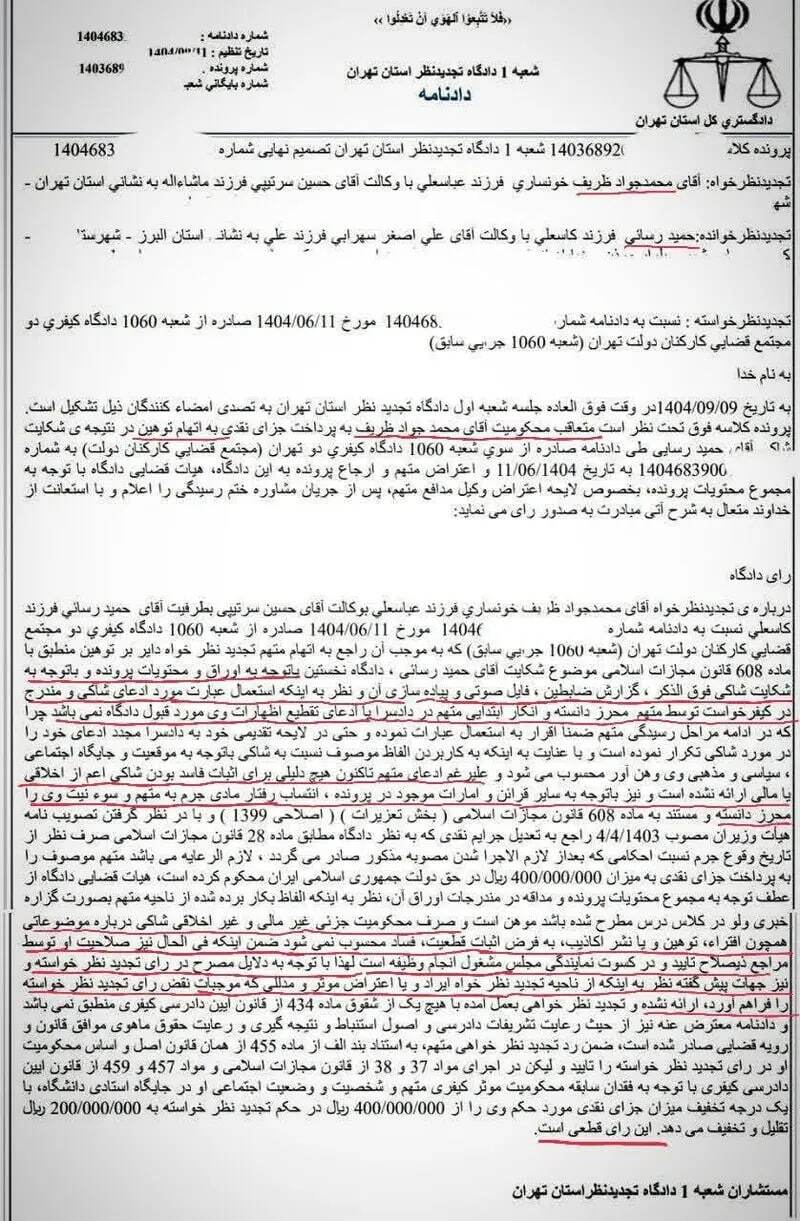 ««فَلاَ تَتَّبِعُوا الْهَوَي أَنْ تَعْدِلُوا»»
شماره دادنامه : 1404683
تاریخ تنظیم : 1404/09/11
شماره پرونده : 1403689
شماره بایگاني شعبه
شعبه 1 دادگاه تجدیدنظر استان تهران
دادنامه
دادگستري کل استان تهران
پرونده کلاسه 14036892 شعبه 1 دادگاه تجدیدنظر استان تهران تصمیم نهایی شماره 1404683
تجدیدنظرخواه: آقای محمدجواد ظریف خونساري فرزند عباسعلي با وکالت آقای حسین سرتیپي فرزند ماشاءاله به نشاني استان تهران -
تجدیدنظرخوانده:حمید رسائي فرزند کاسعلي با وکالت آقای علي اصغر سهرابي فرزند علي به نشانی استان البرز - شهرستا -
تجدیدنظرخواسته : نسبت به دادنامه شماره 140468 مورخ 1404/06/11 صادره از شعبه 1060 دادگاه کیفري دو
مجتمع قضایي کارکنان دولت تهران (شعبه 1060 جزایي سابق)
به نام خدا
به تاریخ 1404/09/09در وقت فوق العاده جلسه شعبه اول دادگاه تجدید نظر استان تهران به تصدی امضاء کنندگان ذیل تشکیل است.
پرونده کلاسه فوق تحت نظر است متعاقب محکومیت آقای محمد جواد ظریف به پرداخت جزای نقدی به اتهام توهین در نتیجه ی شکایت
آقای حمید رسایی طی دادنامه صادره از سوي شعبه 1060 دادگاه کیفري دو تهران (مجتمع قضایي کارکنان دولت) به شماره
1404683900 به تاریخ 11/06/1404 و اعتراض متهم و ارجاع پرونده به این دادگاه، هیات قضایی دادگاه با توجه به
مجموع محتویات پرونده، بخصوص لایحه اعتراض وکیل مدافع متهم، پس از جریان مشاوره ختم رسیدگی را اعلام و با استعانت از
خداوند متعال به شرح آتی مبادرت به صدور رای می نماید:
رای دادگاه
درباره ی تجدیدنظرخواه آقای محمدجواد ظریف خونساري فرزند عباسعلي بوکالت آقای حسین سرتیپي بطرفیت آقای حمید رسائي فرزند
کاسعلي نسبت به دادنامه شماره 1404 مورخ 1404/06/11 صادره از شعبه 1060 دادگاه کیفري دو مجتمع
قضایي کارکنان دولت تهران (شعبه 1060 جزایي سابق) که به موجب آن راجع به اتهام متهم تجدید نظر خواه دایر بر توهین منطبق با
ماده 608 قانون مجازات اسلامی موضوع شکایت آقای حمید رسائی ، دادگاه نخستین باتوجه به اوراق و محتویات پرونده و باتوجه به
شکایت شاکی فوق الذکر ، گزارش ضابطین ، فایل صوتی و پیاده سازی آن و نظر به اینکه استعمال عبارت مورد ادعای شاکی و مندرج
در کیفرخواست توسط متهم محرز دانسته و انکار ابتدایی متهم در دادسرا با ادعای تقطیع اظهارات وی مورد قبول دادگاه نمی باشد چرا
که در ادامه مراحل رسیدگی متهم ضمنا اقرار به استعمال عبارات نموده و حتی در لایحه تقدیمی خود به دادسرا مجدد ادعای خود را
در مورد شاکی تکرار نموده است و با عنایت به اینکه به کاربردن الفاظ موصوف نسبت به شاکی باتوجه به موقعیت و جایگاه اجتماعی
، سیاسی و مذهبی وی وهن آور محسوب می شود و علیرغم ادعای متهم تاکنون هیچ دلیلی برای اثبات فاسد بودن شاکی اعم از اخلاقی
یا مالی ارائه نشده است و نیز باتوجه به سایر قرائن و امارات موجود در پرونده ، انتساب رفتار مادی جرم به متهم و سوء نیت وی را
محرز دانسته و مستند به ماده 608 قانون مجازات اسلامی ( بخش تعزیرات ) ( اصلاحی 1399 ) و با در نظر گرفتن تصویب نامه
هیأت وزیران مصوب 4/4/1403 راجع به تعدیل جرایم نقدی که به نظر دادگاه مطابق ماده 28 قانون مجازات اسلامی صرف نظر از
تاریخ وقوع جرم نسبت احکامی که بعداز لازم الاجرا شدن مصوبه مذکور صادر می گردد ، لازم الرعایه می باشد متهم موصوف را
به پرداخت جزای نقدی به میزان 400/000/000 ریال در حق دولت جمهوری اسلامی ایران محکوم کرده است، هیات قضایی دادگاه از
عطف توجه به مجموع محتویات پرونده و مداقه در مندرجات اوراق آن، نظر به اینکه الفاظ بکار برده شده از ناحیه متهم بصورت گزاره
خبری ولو در کلاس درس مطرح شده باشد موهن است و صرف محکومیت جزئی غیر مالی و غیر اخلاقی شاکی درباره موضوعاتی
همچون افتراء، توهین و یا نشر اکاذیب، به فرض اثبات قطعیت، فساد محسوب نمی شود ضمن اینکه فی الحال نیز صلاحیت او توسط
مراجع ذیصلاح تایید و در کسوت نمایندگی مجلس مشغول انجام وظیفه است لهذا با توجه به دلایل مصرح در رای تجدید نظر خواسته و
نیز جهات پیش گفته نظر به اینکه از ناحیه تجدید نظر خواه ایراد و یا اعتراض موثر و مدللی که موجبات نقض رای تجدید نظر خواسته
را فراهم آورد، ارائه نشده و تجدید نظر خواهی بعمل آمده با هیچ یک از شقوق ماده 434 از قانون آیین دادرسی کیفری منطبق نمی باشد
و دادنامه معترض عنه نیز از حیث رعایت تشریفات دادرسی و اصول استنباط و نتیجه گیری و رعایت حقوق ماهوی موافق قانون و
رویه قضایی صادر شده است، ضمن رد تجدید نظر خواهی متهم، به استناد بند الف از ماده 455 از همان قانون اصل و اساس محکومیت
او در رای تجدید نظر خواسته را تایید و لیکن در اجرای مواد 37 و 38 از قانون مجازات اسلامی و مواد 457 و 459 از قانون آیین
دادرسی کیفری با توجه به فقدان سابقه محکومیت موثر کیفری متهم و شخصیت و وضعیت اجتماعی او در جایگاه استادی دانشگاه، با
یک درجه تخفیف میزان جزای نقدی مورد حکم وی را از 400/000/000 ریال در حکم تجدید نظر خواسته به 200/000/000 ریال
تقلیل و تخفیف می دهد. این رای قطعی است.
مستشاران شعبه 1 دادگاه تجدیدنظر استان تهران